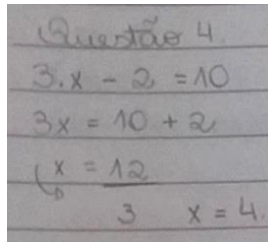 Questão 4.
3.x - 2 = 10
3x = 10 + 2
x = 12/3 x = 4.